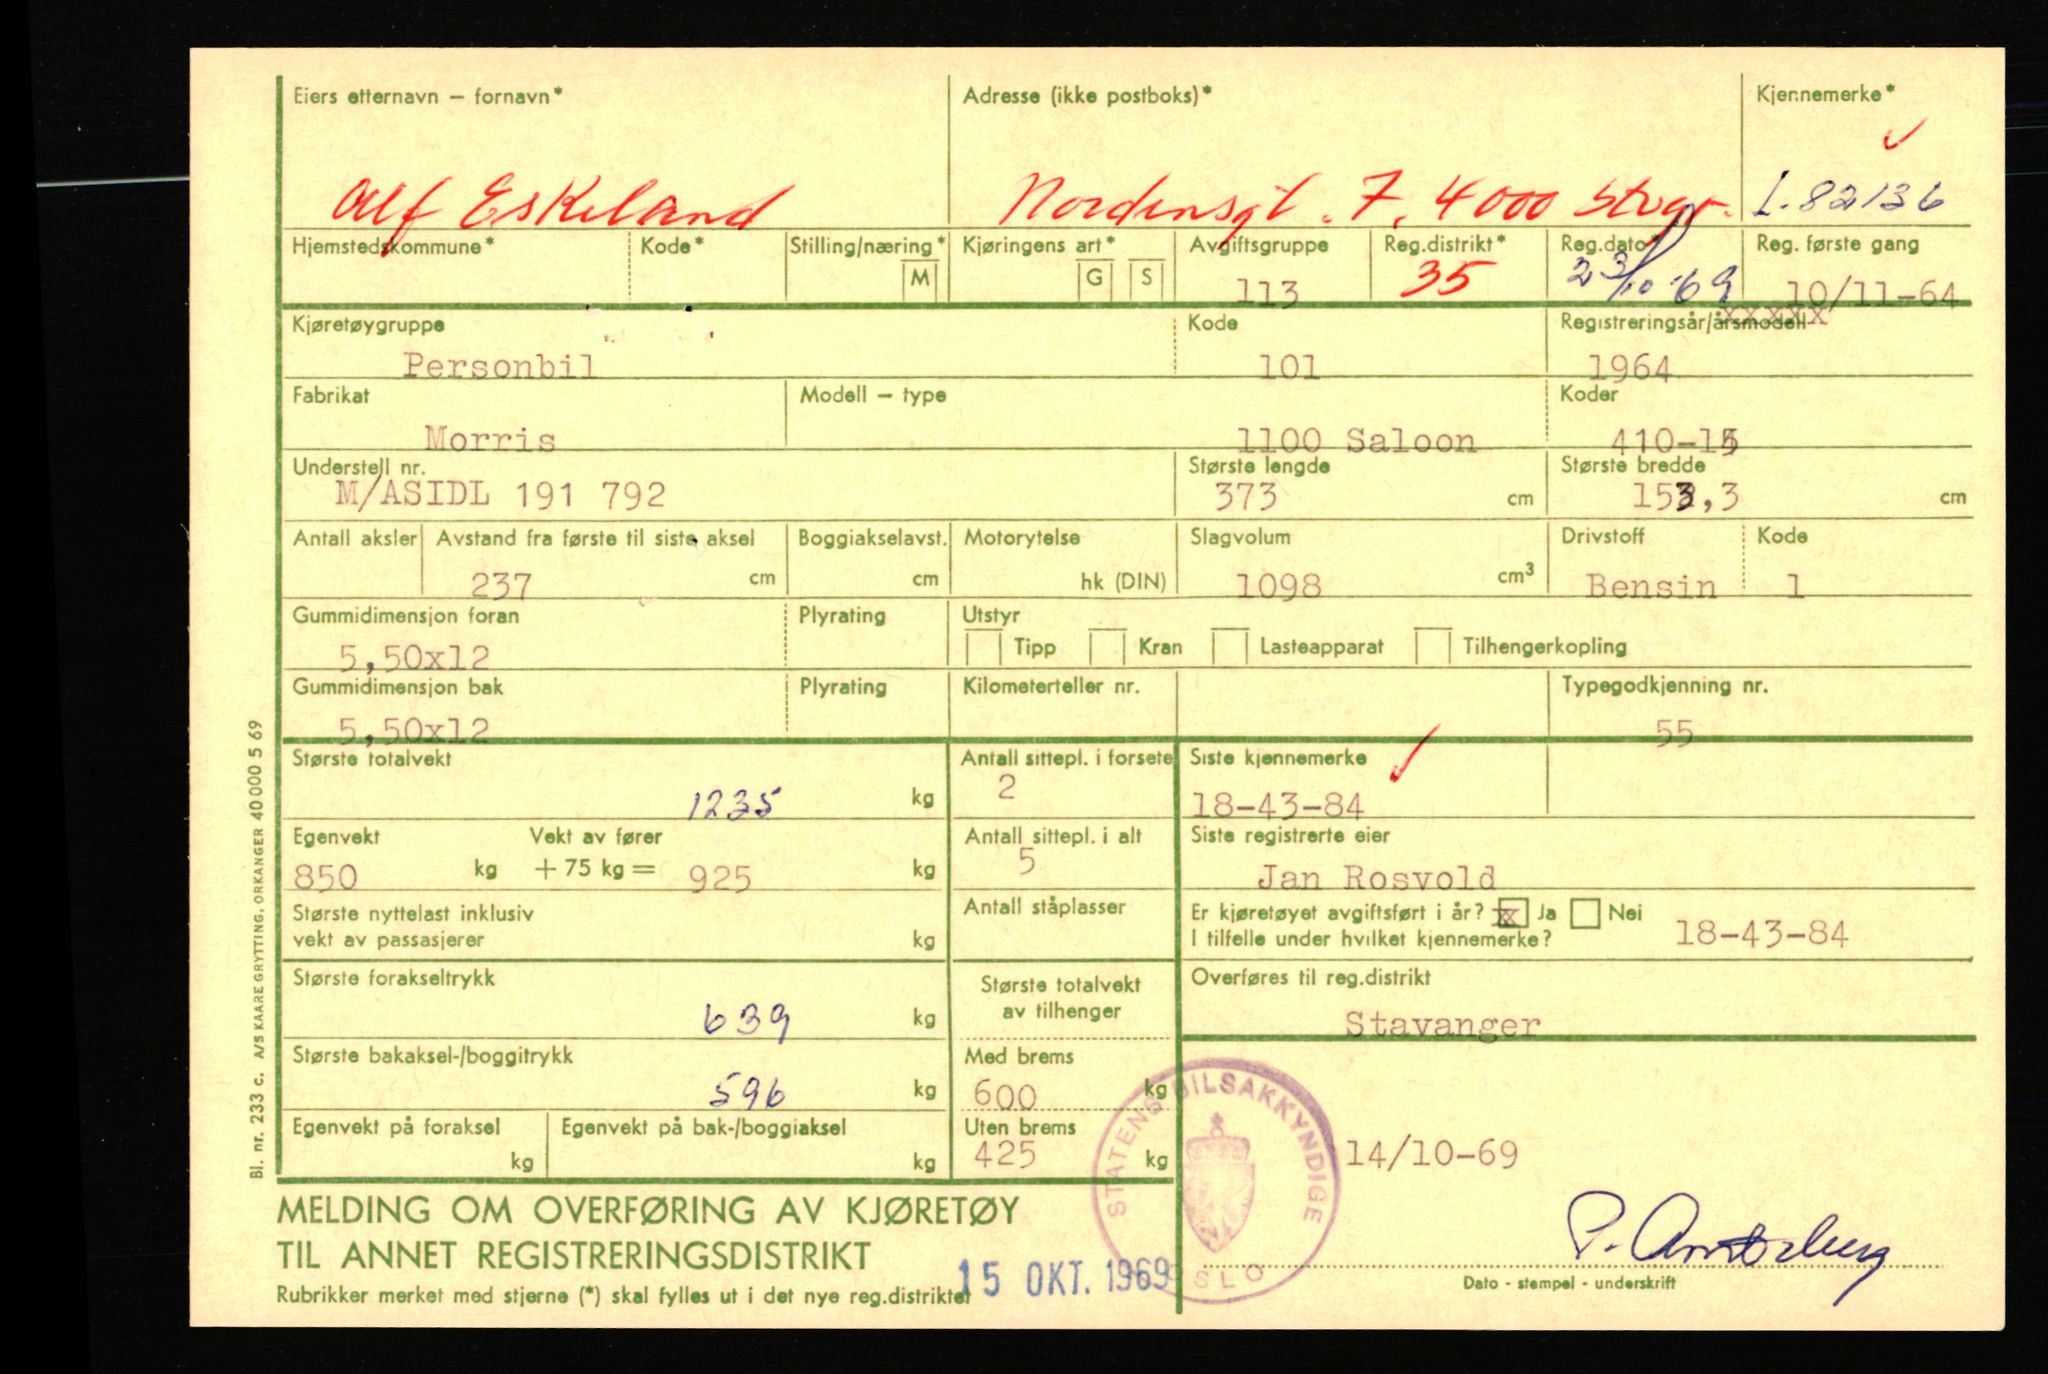 Eiers etternavn – fornavn* Adresse (ikke postboks)* Kjennemerke*
Alf Eskeland Nordensgt. 7, 4000 Stvgr. L-82136
Hjemstedskommune* Kode* Stilling/næring* M Kjøringens art* G S Avgiftsgruppe Reg.distrikt* Reg.dato* Reg. første gang
113 35 23/10-69 10/11-64
Kjøretøygruppe Kode Registreringsår/årsmodell
Personbil 101 1964
Fabrikat Modell – type Koder
Morris 1100 Saloon 410-15
Understell nr. Største lengde Største bredde
M/ASIDL 191 792 373 cm 153,3 cm
Antall aksler Avstand fra første til siste aksel Boggiakselavst. Motorytelse Slagvolum Drivstoff Kode
237 cm cm hk (DIN) 1098 cm³ Bensin 1
Gummidimensjon foran Plyrating Utstyr
5,50x12 Tipp Kran Lasteapparat Tilhengerkopling
Gummidimensjon bak Plyrating Kilometerteller nr. Typegodkjenning nr.
5,50x12 55
Største totalvekt Antall sittepl. i forsete Siste kjennemerke
1235 kg 2 18-43-84
Egenvekt Vekt av fører Antall sittepl. i alt Siste registrerte eier
850 kg + 75 kg = 925 kg 5 Jan Rosvold
Største nyttelast inklusiv Antall ståplasser Er kjøretøyet avgiftsført i år? x Ja Nei
vekt av passasjerer kg I tilfelle under hvilket kjennemerke? 18-43-84
Største forakseltrykk Største totalvekt Overføres til reg.distrikt
639 kg av tilhenger Stavanger
Største bakaksel-/boggitrykk Med brems
596 kg 600 kg
Egenvekt på foraksel Egenvekt på bak-/boggiaksel Uten brems
kg kg 425 kg 14/10-69
STATENS BILSAKKYNDIGE
OSLO
MELDING OM OVERFØRING AV KJØRETØY
TIL ANNET REGISTRERINGSDISTRIKT
15 OKT. 1969
Dato - stempel - underskrift
Rubrikker merket med stjerne (*) skal fylles ut i det nye reg.distriktet
Bl. nr. 233 c. A/S KAARE GRYTTING, ORKANGER 40 000 5 69